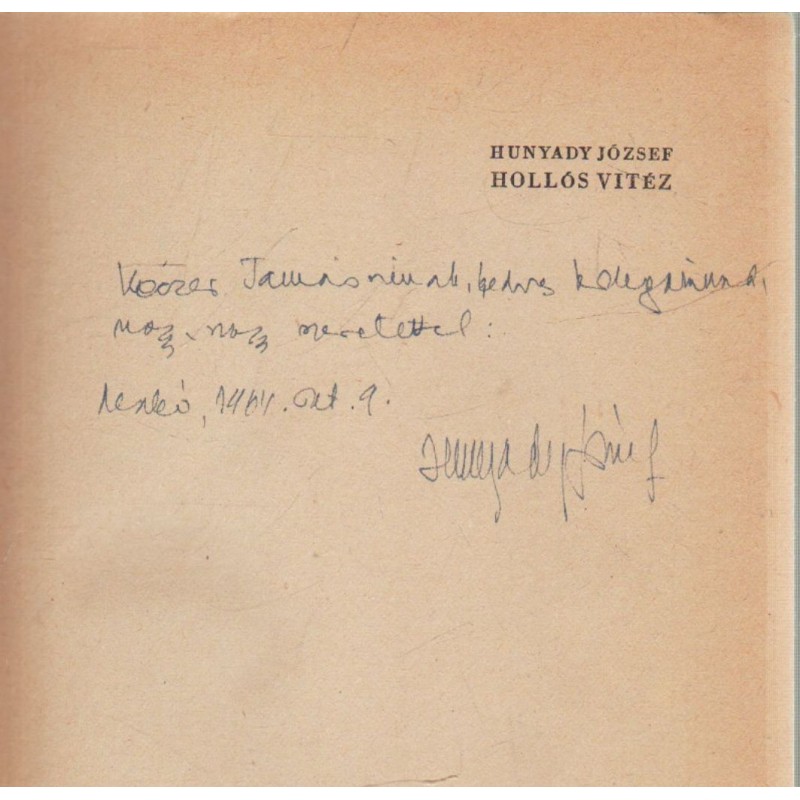 HUNYADY JÓZSEF
HOLLÓS VITÉZ
Tamásnénak, kedves kollegámnak,
nagy-nagy szeretettel:
1964. Okt. 9.
Hunyady József